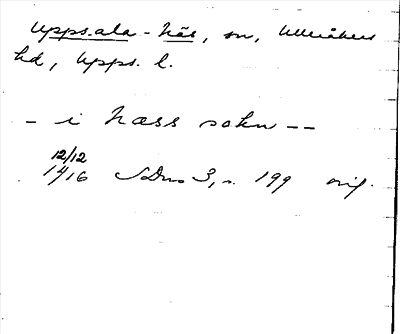 Uppsala-Näs, sn, Ulleråkers
hd, Upps. l.
- i Næss sokn --
12/12
1416 SDns 3, s. 199 orig.